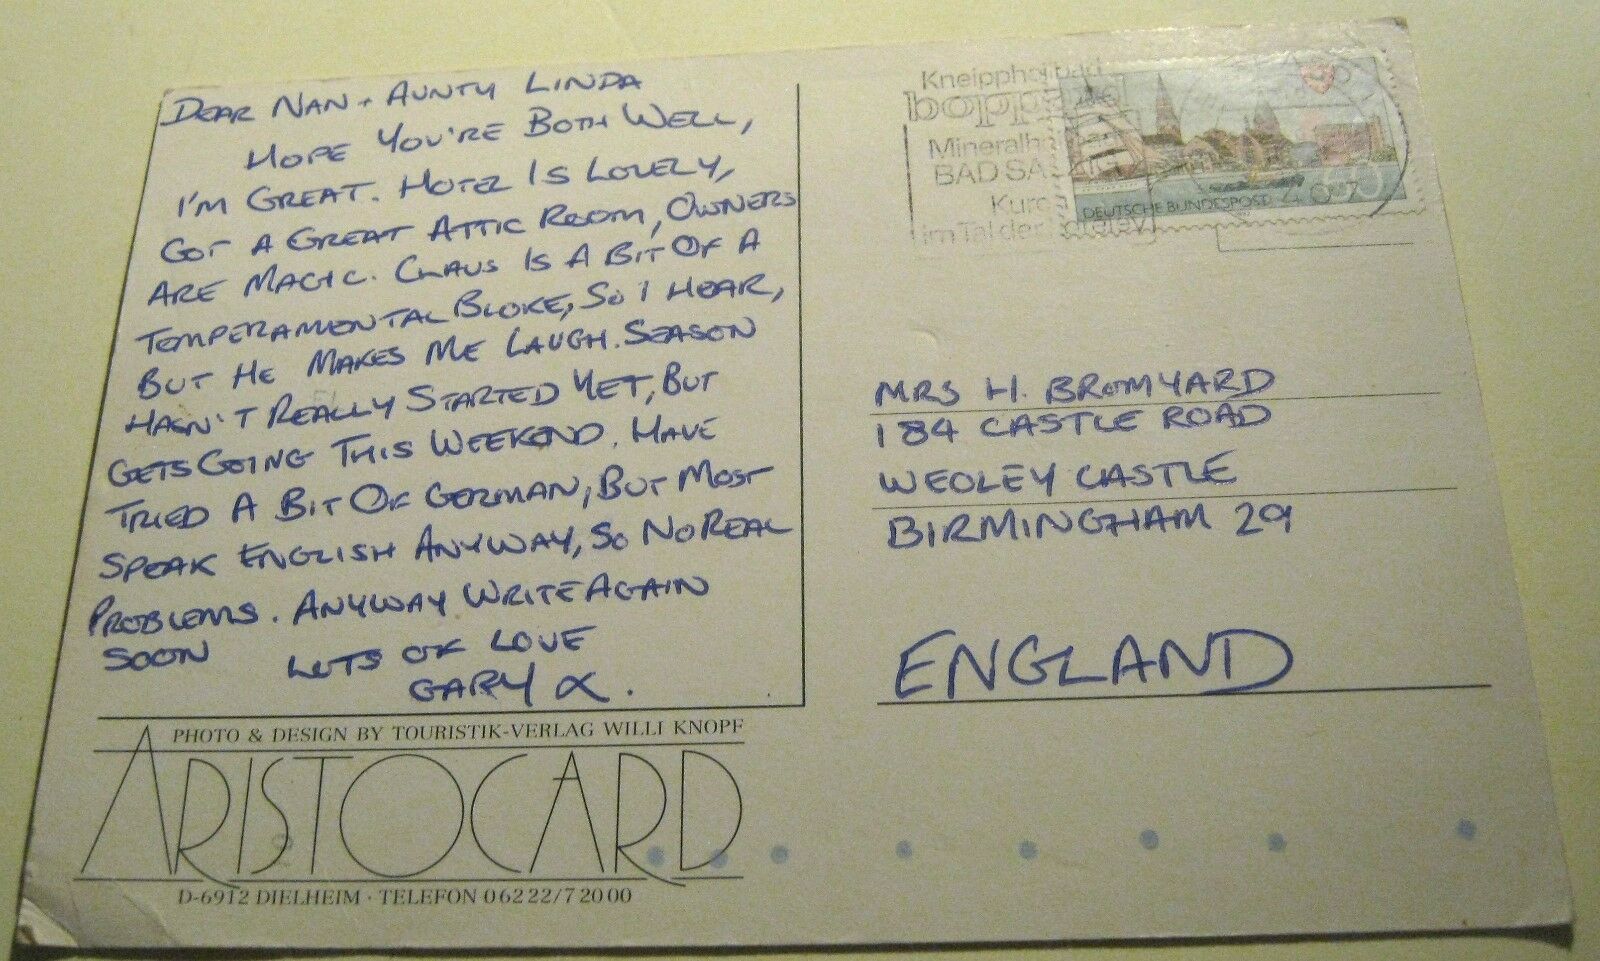 DEAR NAN + AUNTY LINDA
HOPE YOU'RE BOTH WELL,
I'M GREAT. HOTEL IS LOVELY,
GOT A GREAT ATTIC ROOM, OWNERS
ARE MAGIC. CLAUS IS A BIT OF A
TEMPERAMENTAL BLOKE, SO I HEAR,
BUT HE MAKES ME LAUGH. SEASON
HASN'T REALLY STARTED YET, BUT
GETS GOING THIS WEEKEND. HAVE
TRIED A BIT OF GERMAN, BUT MOST
SPEAK ENGLISH ANYWAY, SO NO REAL
PROBLEMS. ANYWAY WRITE AGAIN
SOON
LOTS OF LOVE
GARY X.
PHOTO & DESIGN BY TOURISTIK-VERLAG WILLI KNOPF
ARISTOCARD
D-6912 DIELHEIM · TELEFON 0 62 22/7 20 00
Kneippheilbad
boppard
Mineralheilbad
BAD SALZIG
im Tal der
DEUTSCHE BUNDESPOST
MRS H. BROMYARD
184 CASTLE ROAD
WEOLEY CASTLE
BIRMINGHAM 29
ENGLAND